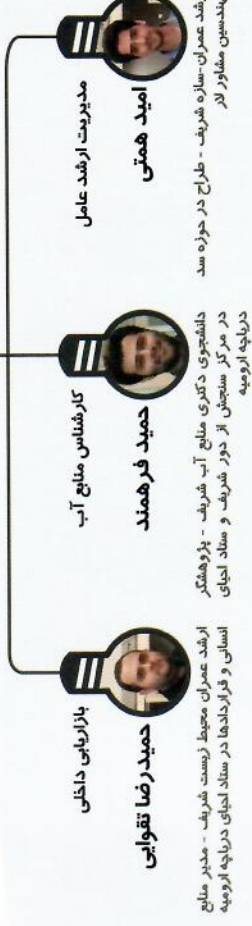 مدیریت ارشد عامل
امید همتی
رشد عمران-سازه شریف - طراح در حوزه سد
مهندسین مشاور لار
کارشناس منابع آب
حمید فرهمند
دانشجوی دکتری منابع آب شریف - پژوهشگر
در مرکز سنجش از دور شریف و ستاد احیای
دریاچه ارومیه
بازاریابی داخلی
حمیدرضا تقوایی
ارشد عمران محیط زیست شریف - مدیر منابع
انسانی و قراردادها در ستاد احیای دریاچه ارومیه